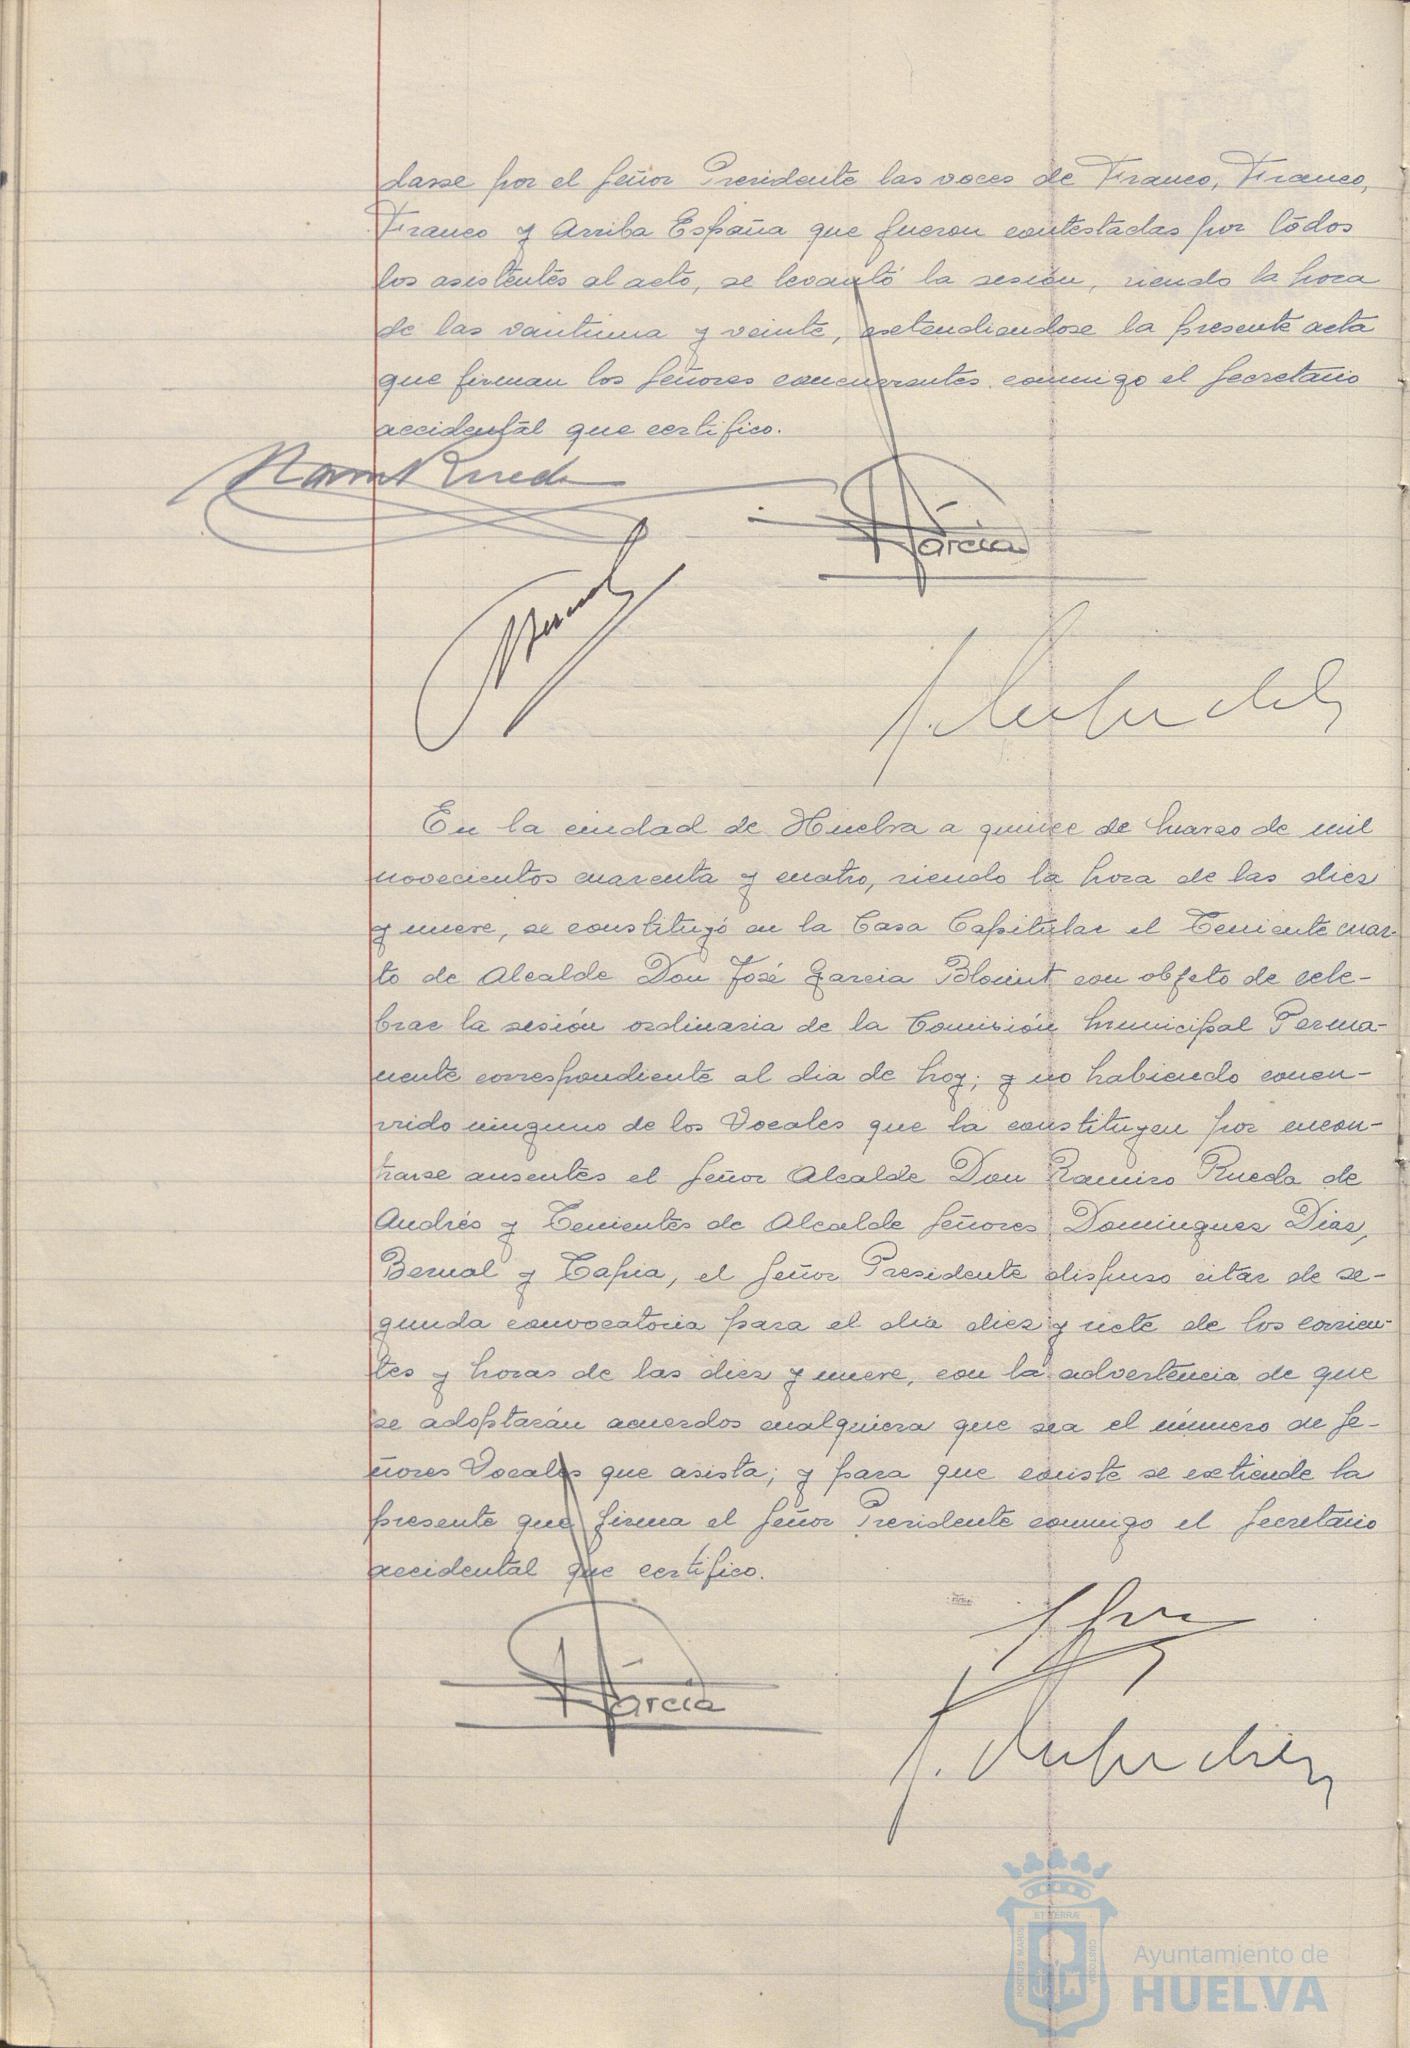 dasse por el Señor Presidente las voces de Franco, Franco,
Franco y Arriba España que fueron contestadas por todos
los asistentes al acto, se levantó la sesión, siendo la hora
de las vantiuna y veinte, extendiendose la presente acta
que firman los Señores concurrentes conmigo el Secretario
accidental que certifico.
Ramiro Rueda
García
Bernal
En la ciudad de Huelva a quince de Marzo de mil
novecientos cuarenta y cuatro, siendo la hora de las diez
y nueve, se constituyó en la Casa Capitular el Teniente cuar-
to de Alcalde Don José Garcia Blount con objeto de cele-
brar la sesión ordinaria de la Comisión Municipal Perma-
nente correspondiente al dia de hoy; y no habiendo concu-
rrido ninguno de los Vocales que la constituyen por encon-
trarse ausentes el Señor Alcalde Don Ramiro Rueda de
Andrés y Tenientes de Alcalde Señores Dominguez Diaz,
Bernal y Tapia, el Señor Presidente dispuso citar de se-
gunda convocatoria para el dia diez y siete de los corrien-
tes y horas de las diez y nueve, con la advertencia de que
se adoptarán acuerdos cualquiera que sea el número de Se-
ñores Vocales que asista; y para que conste se extiende la
presente que firma el Señor Presidente conmigo el Secretario
accidental que certifico.
García
ET TERRÆ
PORTUS MARIS
CUSTODIA
Ayuntamiento de
HUELVA